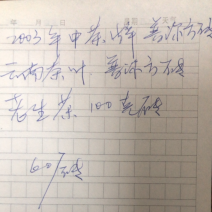 2003年中茶牌普洱方砖
云南茶叶 普洱方砖
老生茶 100克砖
60/砖